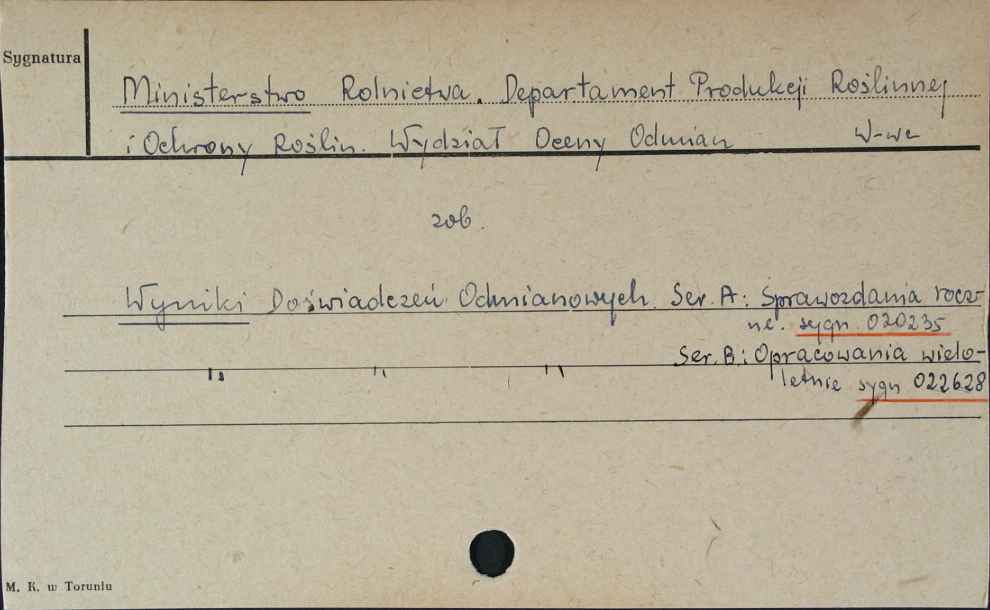 Sygnatura
Ministerstwo Rolnictwa. Departament Produkcji Roślinnej
i Ochrony Roślin. Wydział Oceny Odmian W-wa
zob.
Wyniki Doświadczeń Odmianowych. Ser. A: Sprawozdania rocz-
ne. sygn. 020235
Ser. B: Opracowania wielo-
" " " letnie sygn 022628
M. K. w Toruniu